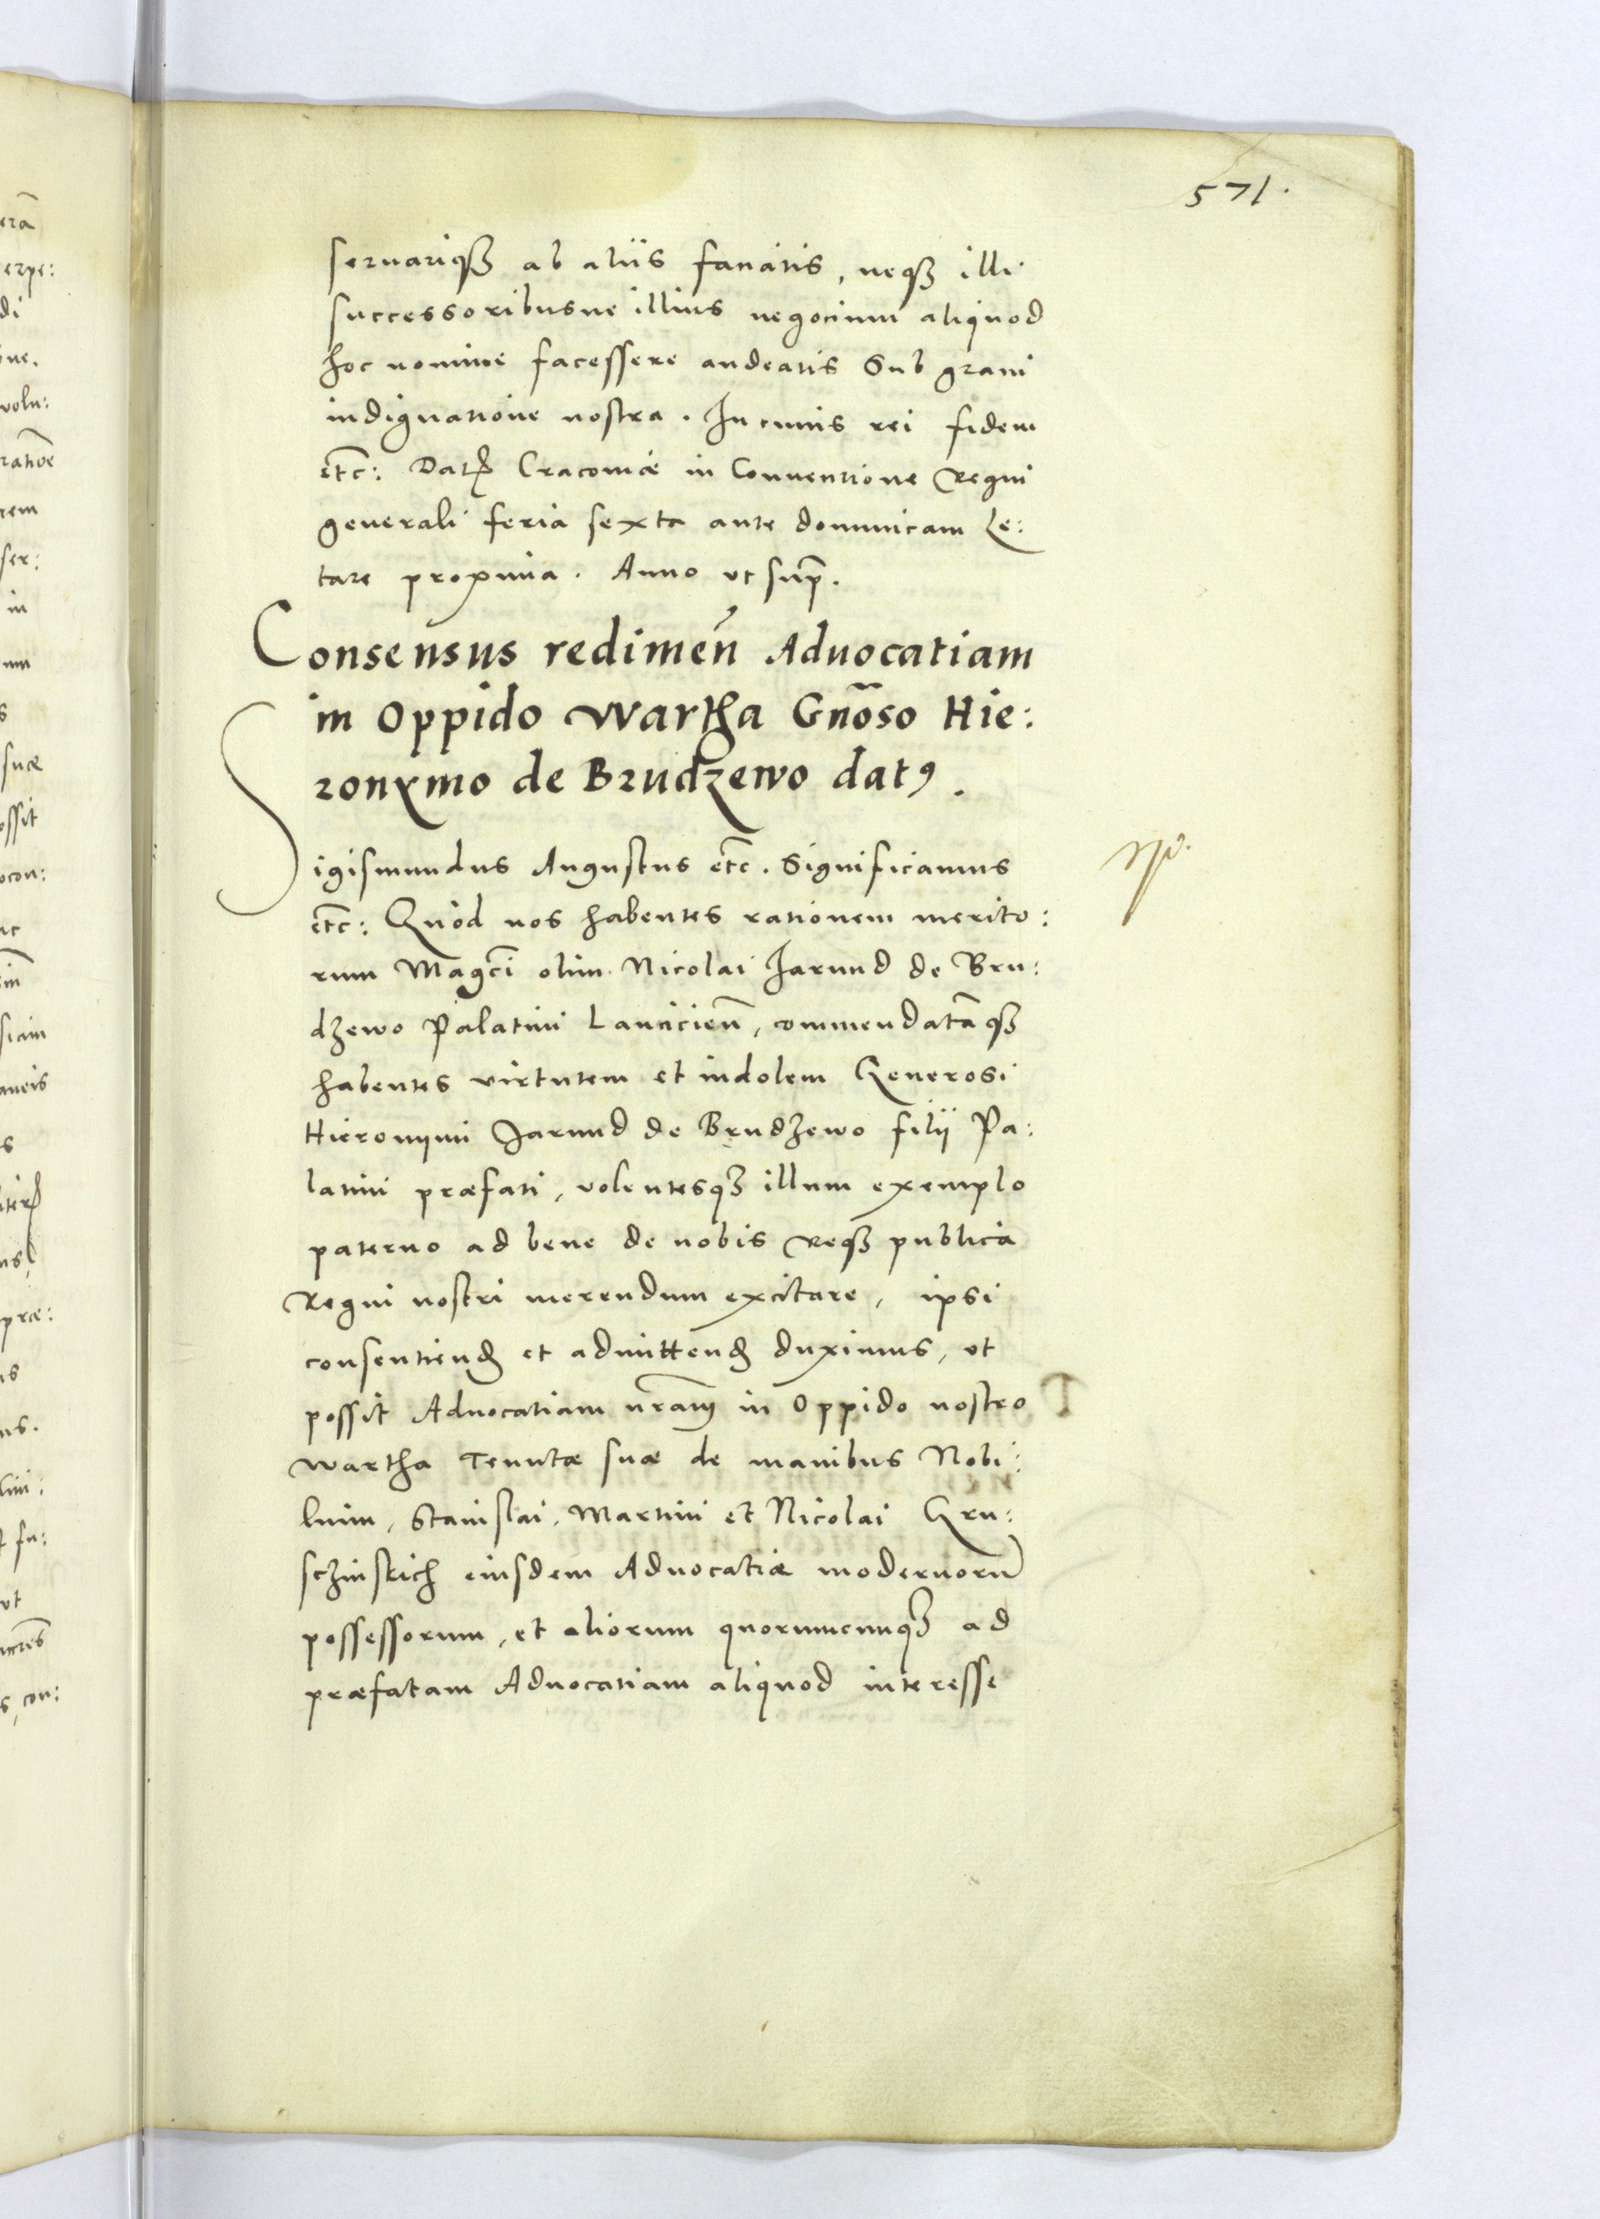 571.
seruariqꝫ ab aliis faciatis, neqꝫ illi
successoribusue illius negocium aliquod
hoc nomine facessere audeatis Sub graui
indignatione nostra. In cuius rei fidem
etc̄: Datꝭ Cracouiæ in Conuentione Regni
generali feria sexta ante dominicam Le:
tare proxima. Anno vt sup̄.
Consensus redimeń Aduocatiam
in Oppido Wartha Gnōso Hie:
ronymo de Brudzewo datꝰ.
Sigismundus Augustus etc̄. Significamus
etc̄: Quod nos habentes rationem merito:
rum Magc̄i olim Nicolai Jarand de Bru:
dzewo Palatini Lancicien̄, commendatāqꝫ
habentes virtutem et indolem Generosi
Hieronymi Jarand de Brudzewo filij Pa:
latini præfati, volentesqꝫ illum exemplo
paterno ad bene de nobis Reqꝫ publica
Regni nostri merendum excitare, ipsi
consentienđ et admittenđ duximus, vt
possit Aduocatiam nr̄am in Oppido nostro
Wartha Tenutæ suæ de manibus Nobi:
lium, Stanislai, Martini et Nicolai Gru:
sczinskich eiusdem Aduocatiæ modernorū
possessorum, et aliorum quorumcunqꝫ ad
præfatam Aduocatiam aliquod interesse